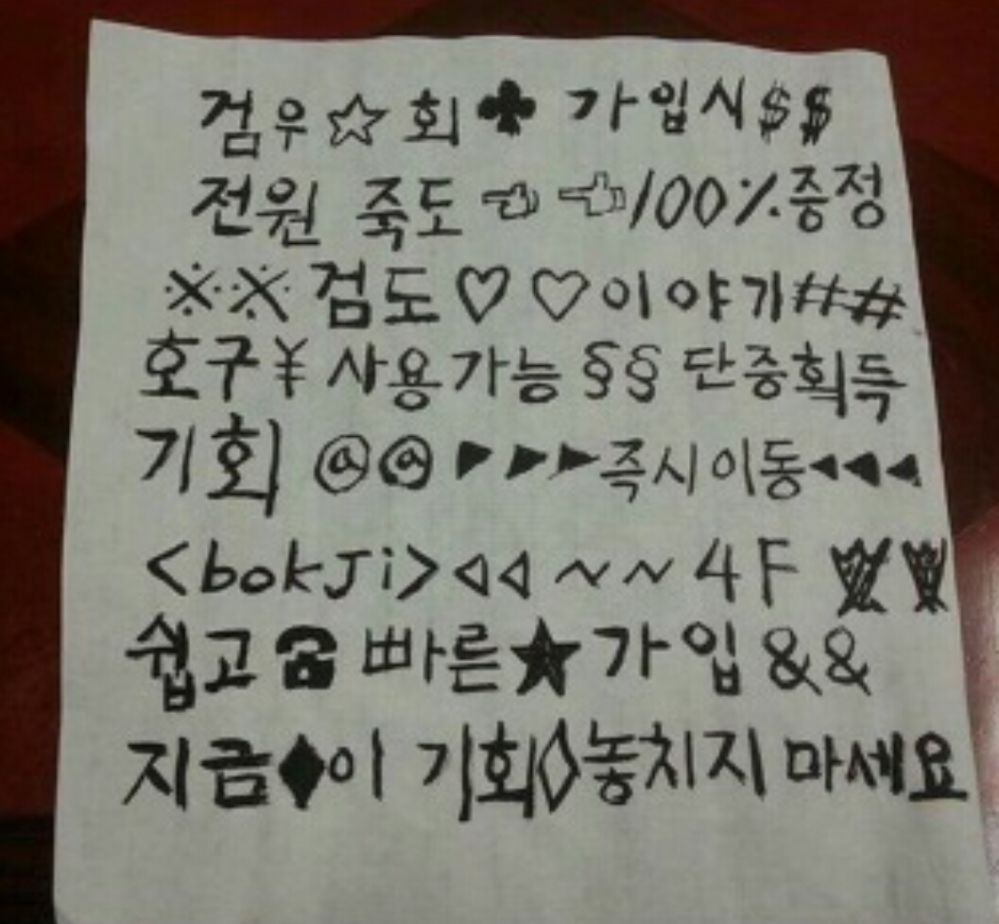 검우☆회♣ 가입시$$
전원 죽도☜☜100%증정
※※검도♡♡이야기##
호구¥사용가능§§단중획득
기회@@▶▶▶즉시이동◀◀◀
<bokJi>◁◁~~4F
쉽고☎빠른★가입&&
지금◆이 기회◇놓치지 마세요